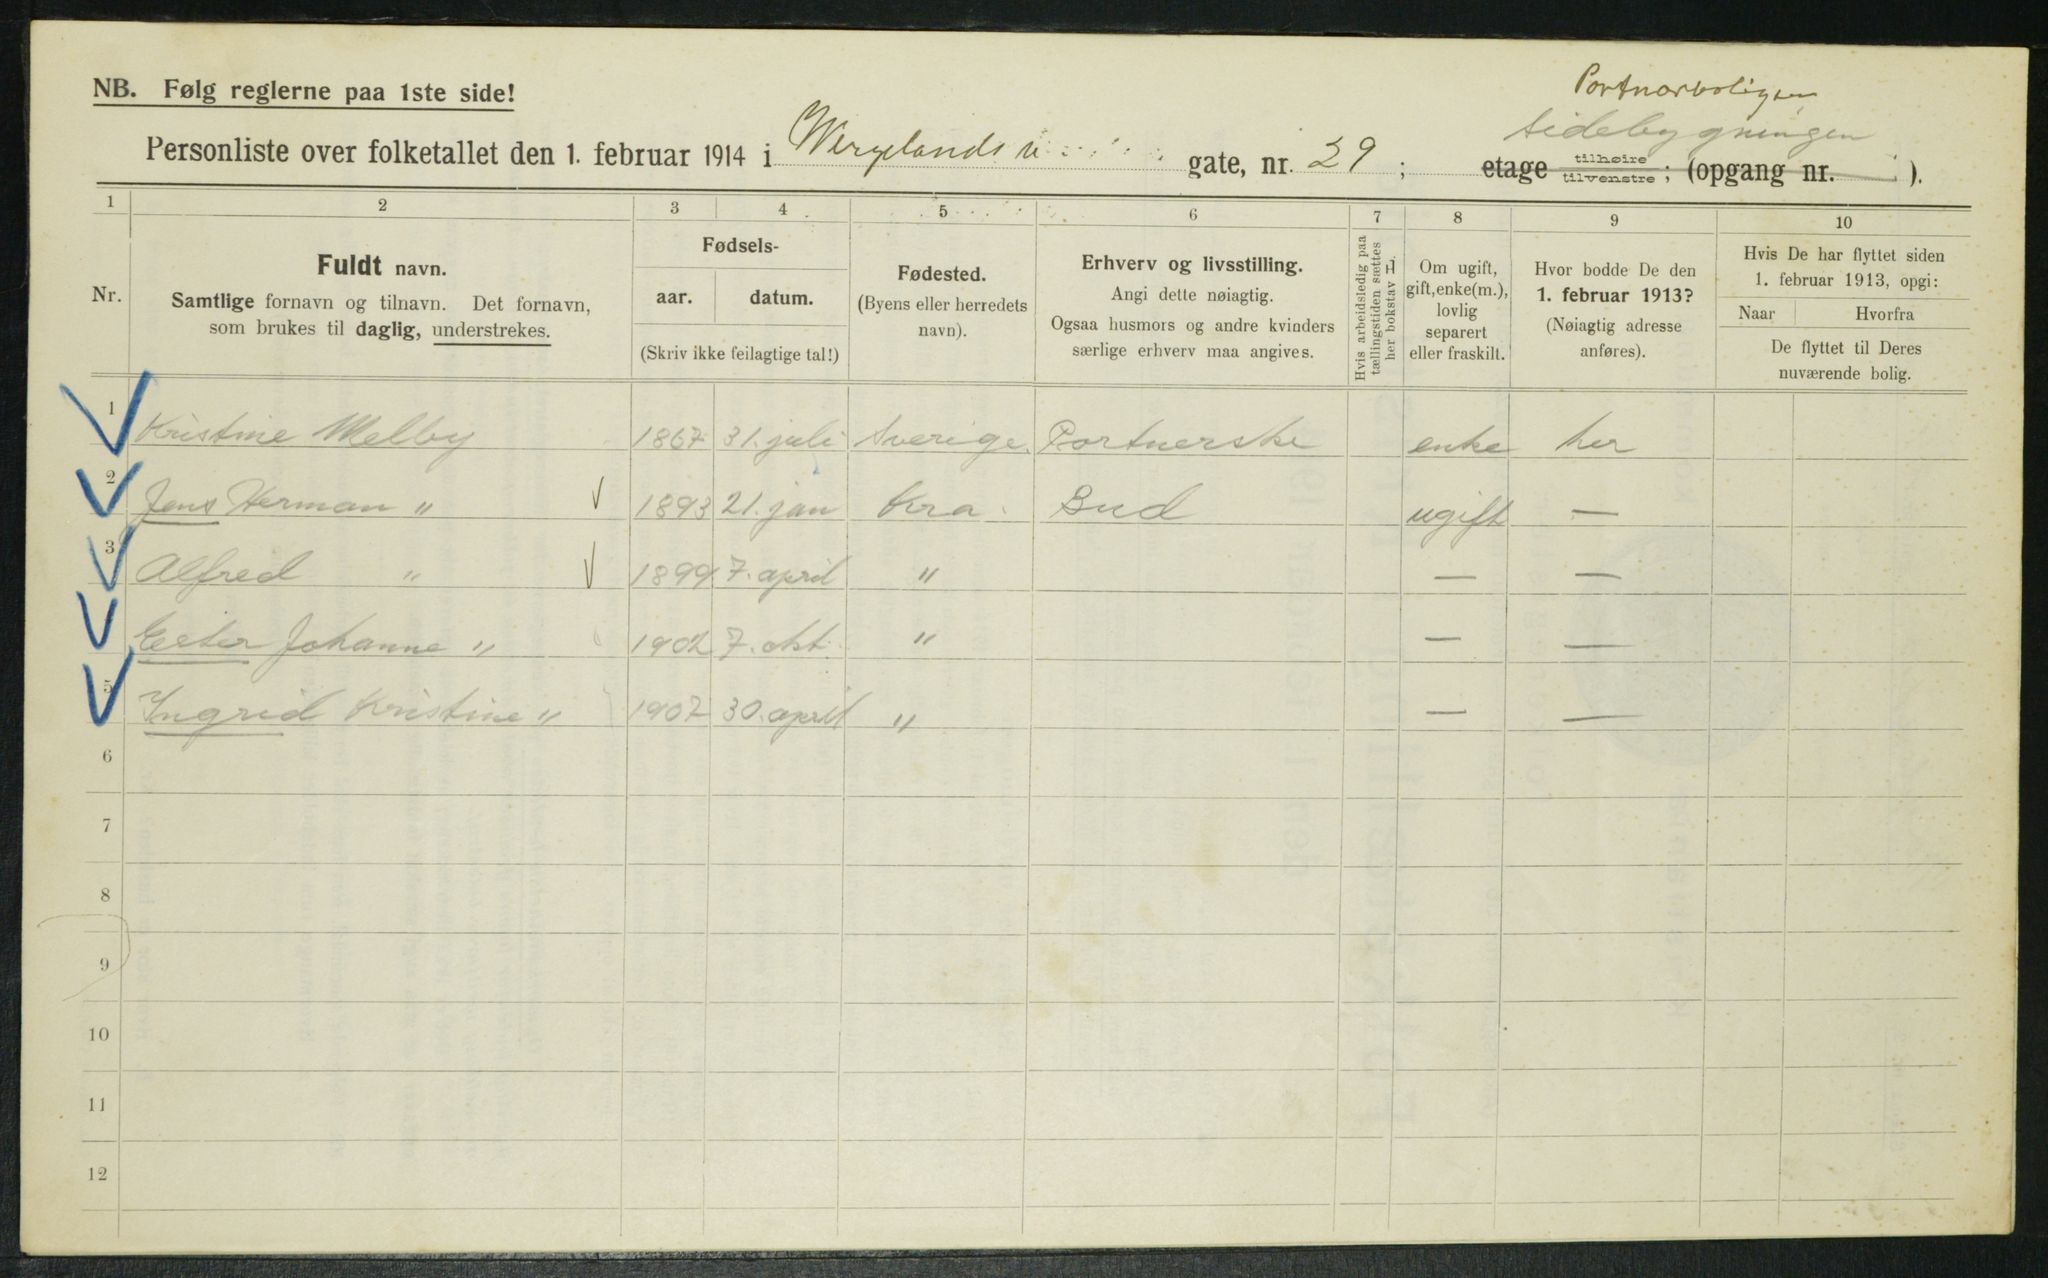 NB. Følg reglerne paa 1ste side!
Portnerboligen
sidebygningen
Personliste over folketallet den 1. februar 1914 i Wergelands v gate, nr. 29 ; etage tilhøire tilvenstre ; (opgang nr. ).
1 2 3 4 5 6 7 8 9 10
Nr.
Fuldt navn.
Samtlige fornavn og tilnavn. Det fornavn,
som brukes til daglig, understrekes.
Fødsels-
aar. datum.
(Skriv ikke feilagtige tal!)
Fødested.
(Byens eller herredets
navn).
Erhverv og livsstilling.
Angi dette nøiagtig.
Ogsaa husmors og andre kvinders
særlige erhverv maa angives.
Hvis arbeidsledig paa
tællingstiden sættes
her bokstav
Om ugift,
gift, enke(m.),
lovlig
separert
eller fraskilt.
Hvor bodde De den
1. februar 1913?
(Nøiagtig adresse
anføres).
Hvis De har flyttet siden
1. februar 1913, opgi:
Naar Hvorfra
De flyttet til Deres
nuværende bolig.
1 Kristine Melby 1867 31. juli Sverige. Portnerske enke her
2 Jens Herman " 1893 21. jan Kra. Bud ugift —
3 Alfred " 1899 7. april " — —
Ester Johanne " 1902 7. okt. " — —
5 Ingrid Kristine " 1907 30. april " — —
6
7
8
9
10
11
12